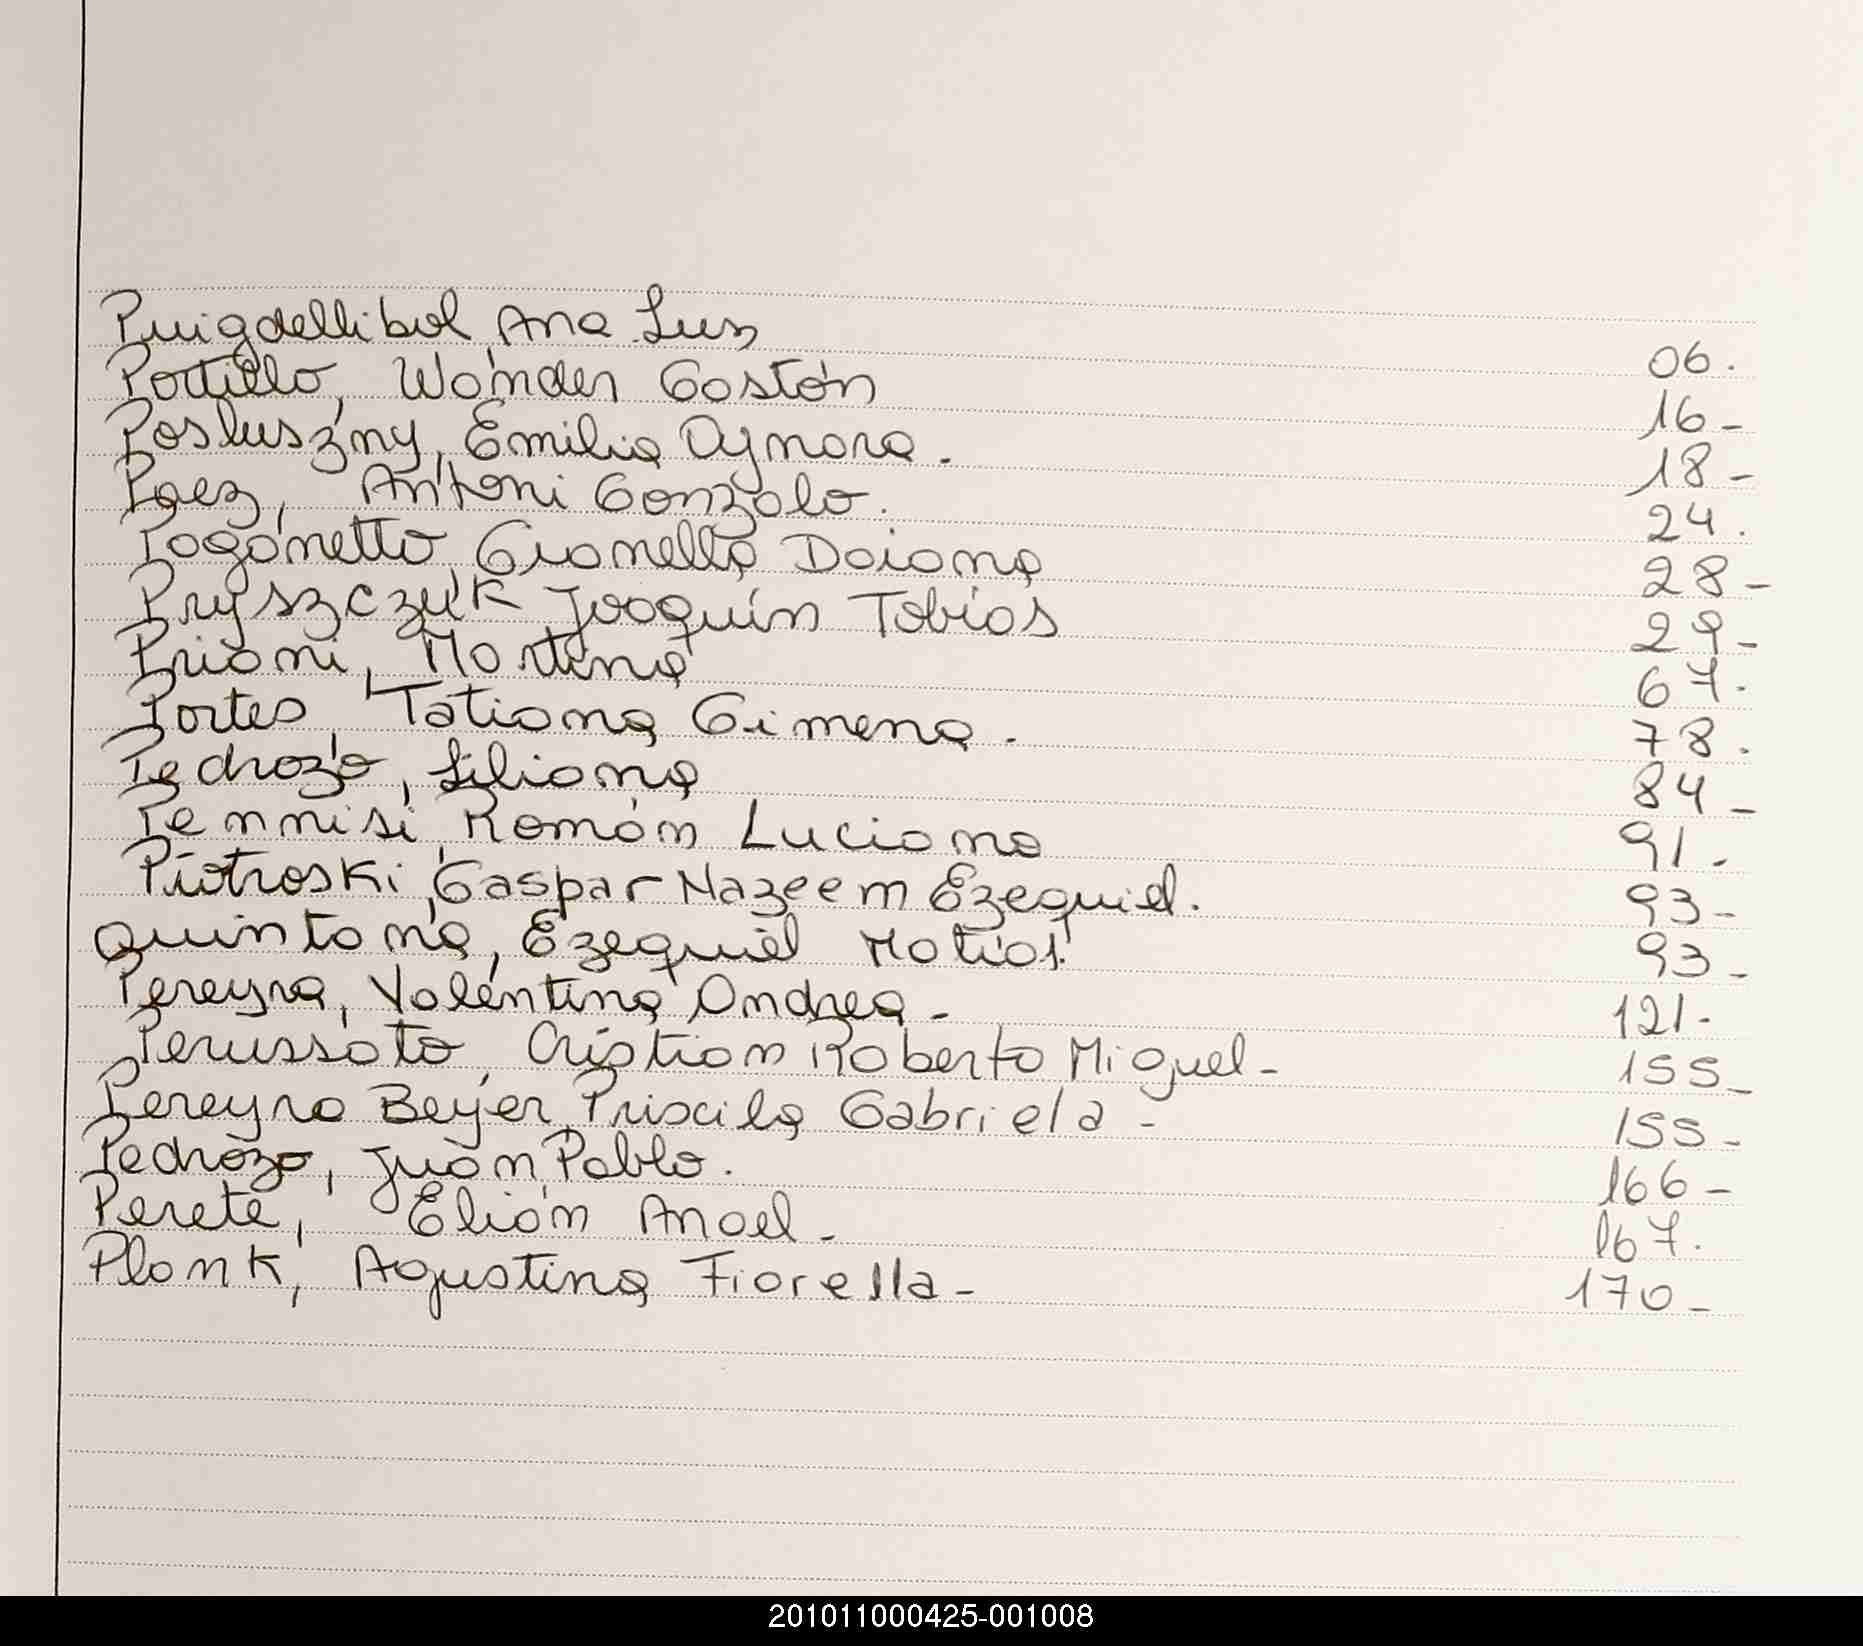 Puigdellibol, Ana Luz 06.
Portillo, Wander Gastón 16-
Posluszny, Emilia Aynara. 18-
Paez, Antoni Gonzalo. 24.
Paganetto, Gianella Daiana 28-
Pryszczuk Joaquín Tobias 29-
Priani, Martina 67.
Portes, Tatiana Gimena. 78.
Pedrozo, Liliana 84-
Pennisi, Román Luciano 91.
Piotroski, Gaspar Nazeem Ezequiel. 93-
Quintana, Ezequiel Matias. 93-
Pereyra, Valentina Andrea- 121.
Perussato, Cristian Roberto Miguel- 155-
Pereyra Beyer, Priscila Gabriela- 155-
Pedrozo, Juan Pablo. 166-
Perete, Elián Anael- 167.
Plank, Agustina Fiorella- 170-
201011000425-001008